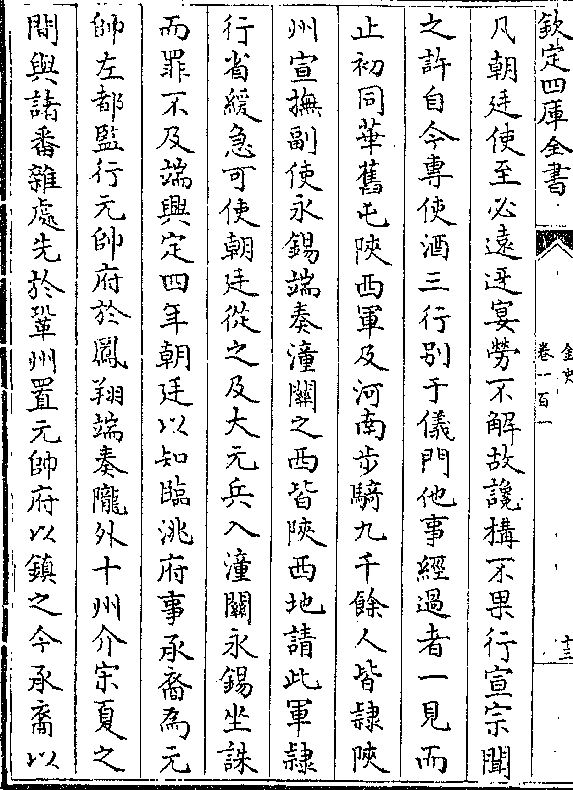 欽定四庫全書
金史
卷一百一
十三
凡朝廷使至必遠迓宴勞不解故讒搆不果行宣宗聞
之許自今專使酒三行别于儀門他事經過者一見而
止初同華舊屯陝西軍及河南步騎九千餘人皆隷陝
州宣撫副使永錫端奏潼關之西皆陝西地請此軍隷
行省緩急可使朝廷從之及大元兵入潼關永錫坐誅
而罪不及端興定四年朝廷以知臨洮府事承裔為元
帥左都監行元帥府於鳳翔端奏隴外十州介宋夏之
間與諸番雜處先於鞏州置元帥府以鎮之今承裔以